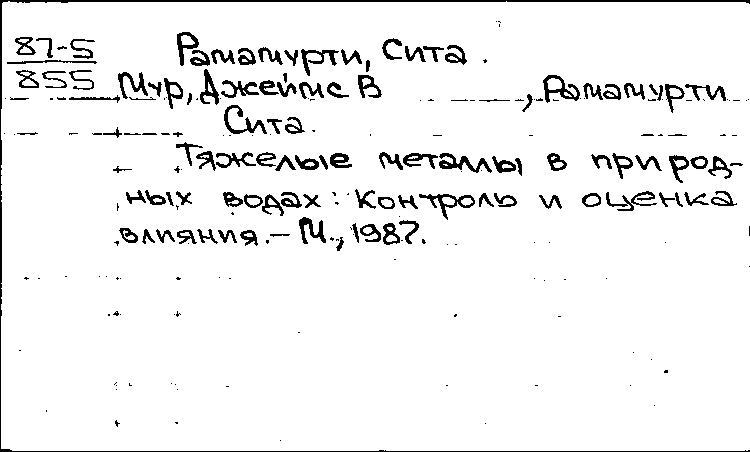 87-5 Рамамурти, Сита.
855 Мур, Джеймс В , Рамамурти
Сита.
Тяжелые металлы в природ-
ных водах: Контроль и оценка
влияния.– М., 1987.